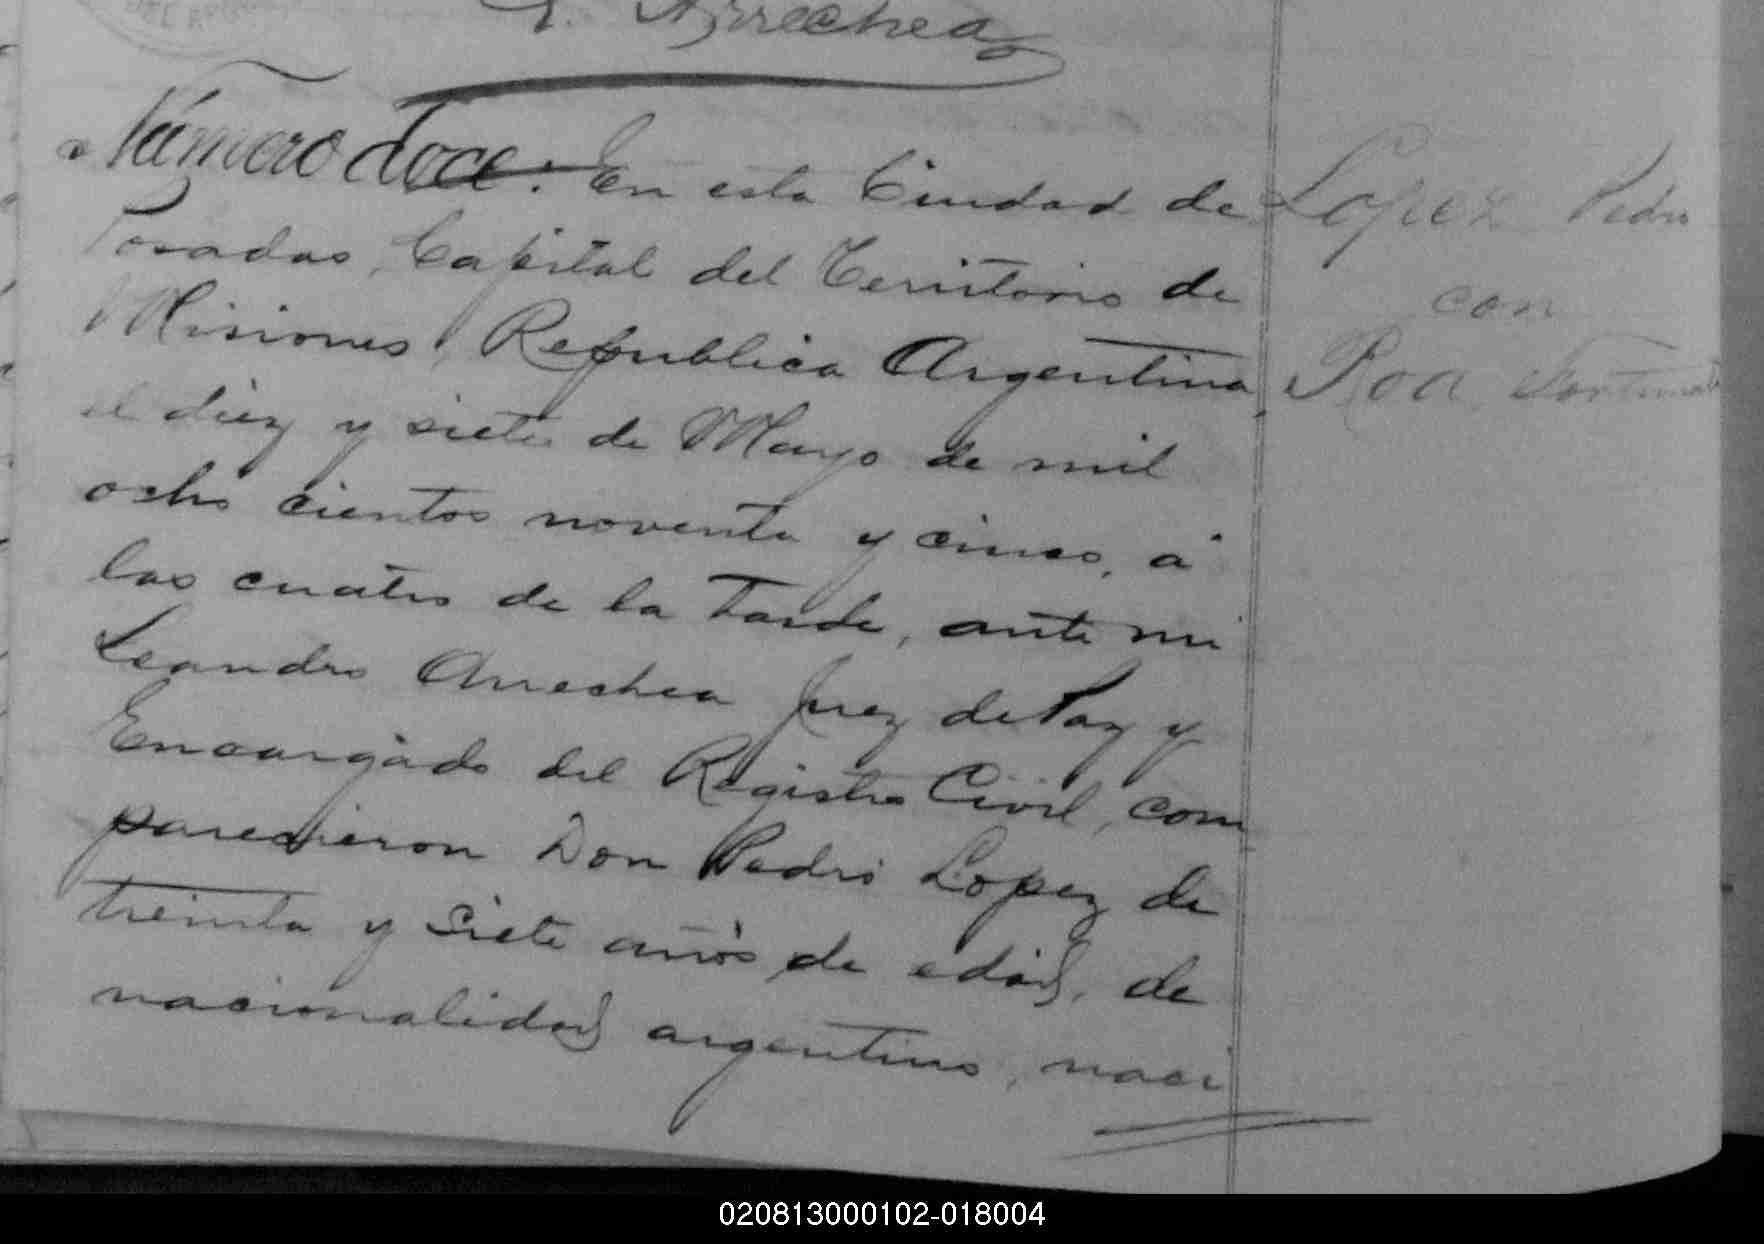 L. Arrechea
Número doce: En esta Ciudad de
Posadas, Capital del Territorio de
Misiones, Republica Argentina,
el diez y siete de Mayo de mil
ocho cientos noventa y cinco, á
las cuatro de la tarde, ante mi
Leandro Arrechea Juez de Paz y
Encargado del Registro Civil, com
parecieron Don Pedro Lopez de
treinta y siete años de edad, de
nacionalidad argentino, naci
Lopez Pedro
con
Roa,
020813000102-018004